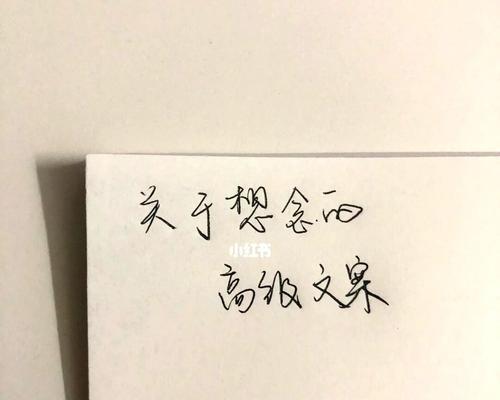 关于想念的
小红书
高级文案